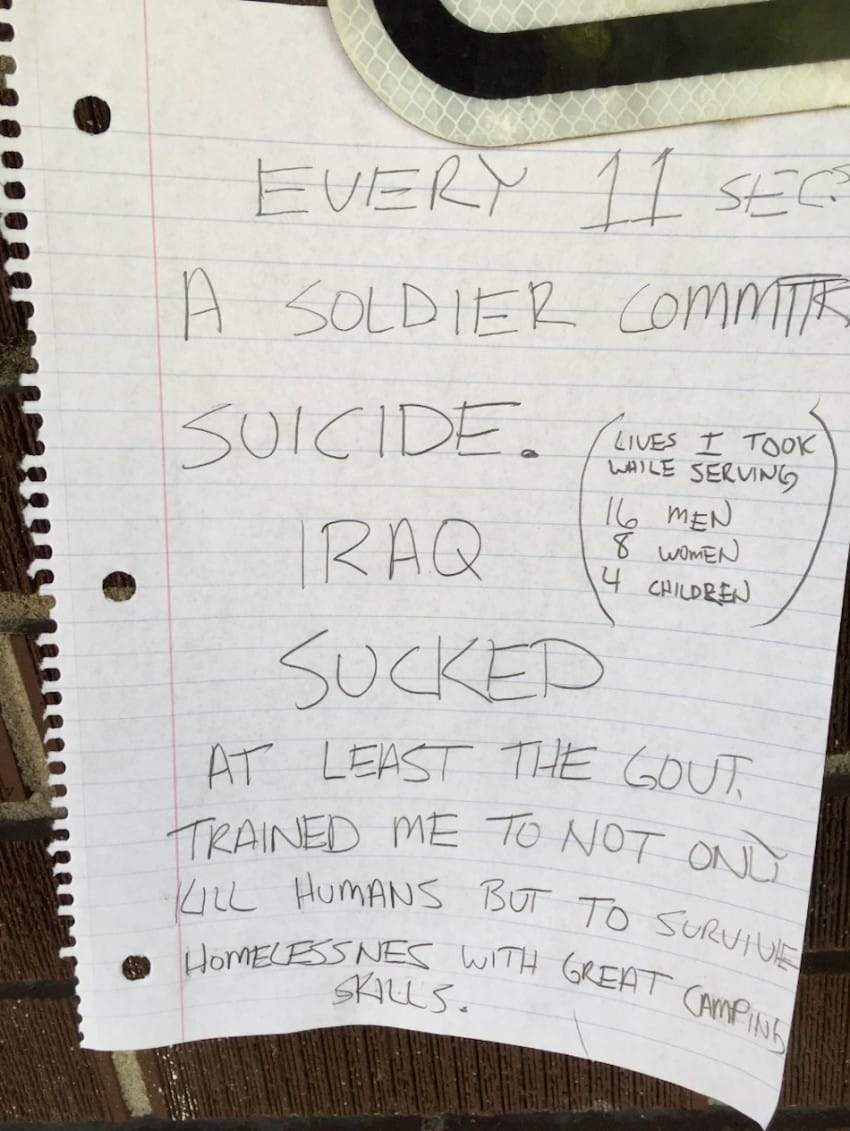 EVERY 11 SECS
A SOLDIER COMMITTS
SUICIDE.
(LIVES I TOOK
WHILE SERVING
16 MEN
8 WOMEN
4 CHILDREN)
IRAQ
SUCKED
AT LEAST THE GOVT.
TRAINED ME TO NOT ONLY
KILL HUMANS BUT TO SURVIVE
HOMELESSNES WITH GREAT CAMPING
SKILLS.